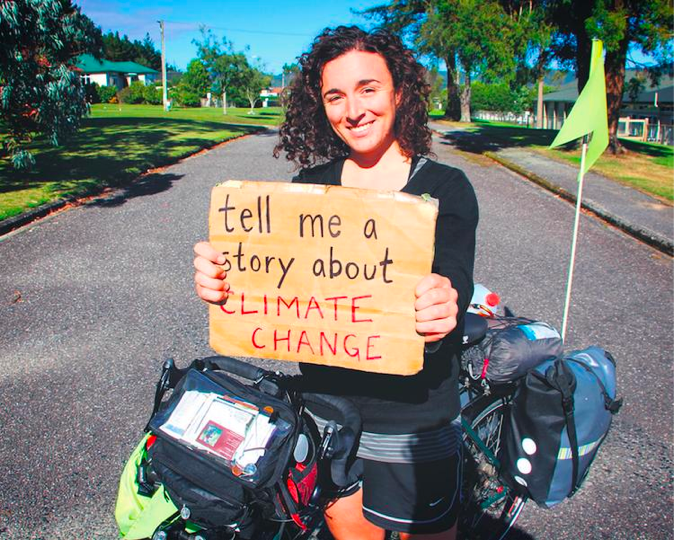 tell me a
story about
CLIMATE
CHANGE